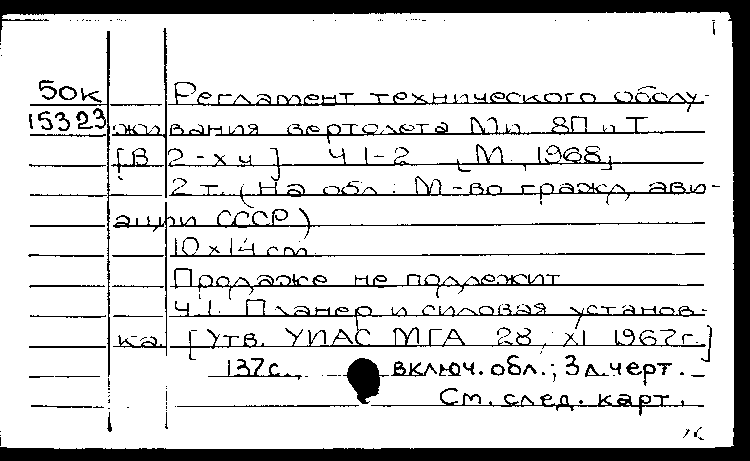 50к Регламент технического обслу-
15323 живания вертолета Ми 8П и Т
[В 2-х ч] Ч 1-2 [М, 1968]
2 т. (На обл.: М-во гражд, ави-
ации СССР)
10 x 14 cm
Продаже не подлежит
Ч.1. Планер и силовая установ-
ка. [Утв. УИАС МГА 28, XI 1967г.]
137с., включ. обл.; 3 л. черт. –
См. след. карт.